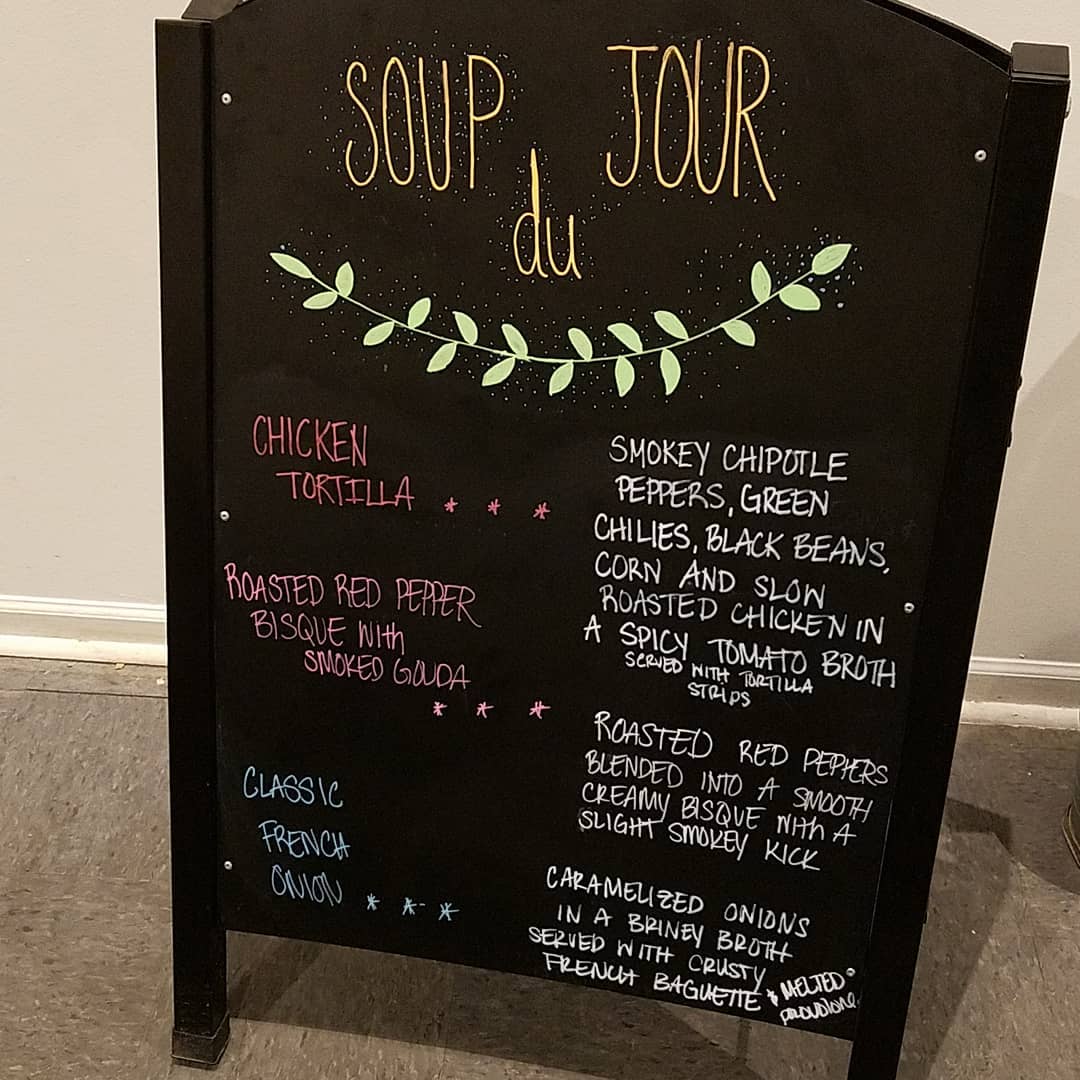 SOUP
du
JOUR
CHICKEN
TORTILLA * * *
SMOKEY CHIPOTLE
PEPPERS, GREEN
CHILIES, BLACK BEANS,
CORN AND SLOW
ROASTED CHICKEN IN
A SPICY TOMATO BROTH
SERVED WITH TORTILLA
STRIPS
ROASTED RED PEPPER
BISQUE WITH
SMOKED GOUDA
* * *
ROASTED RED PEPPERS
BLENDED INTO A SMOOTH
CREAMY BISQUE WITH A
SLIGHT SMOKEY KICK
CLASSIC
FRENCH
ONION * * *
CARAMELIZED ONIONS
IN A BRINEY BROTH
SERVED WITH CRUSTY
FRENCH BAGUETTE & MELTED
provolone